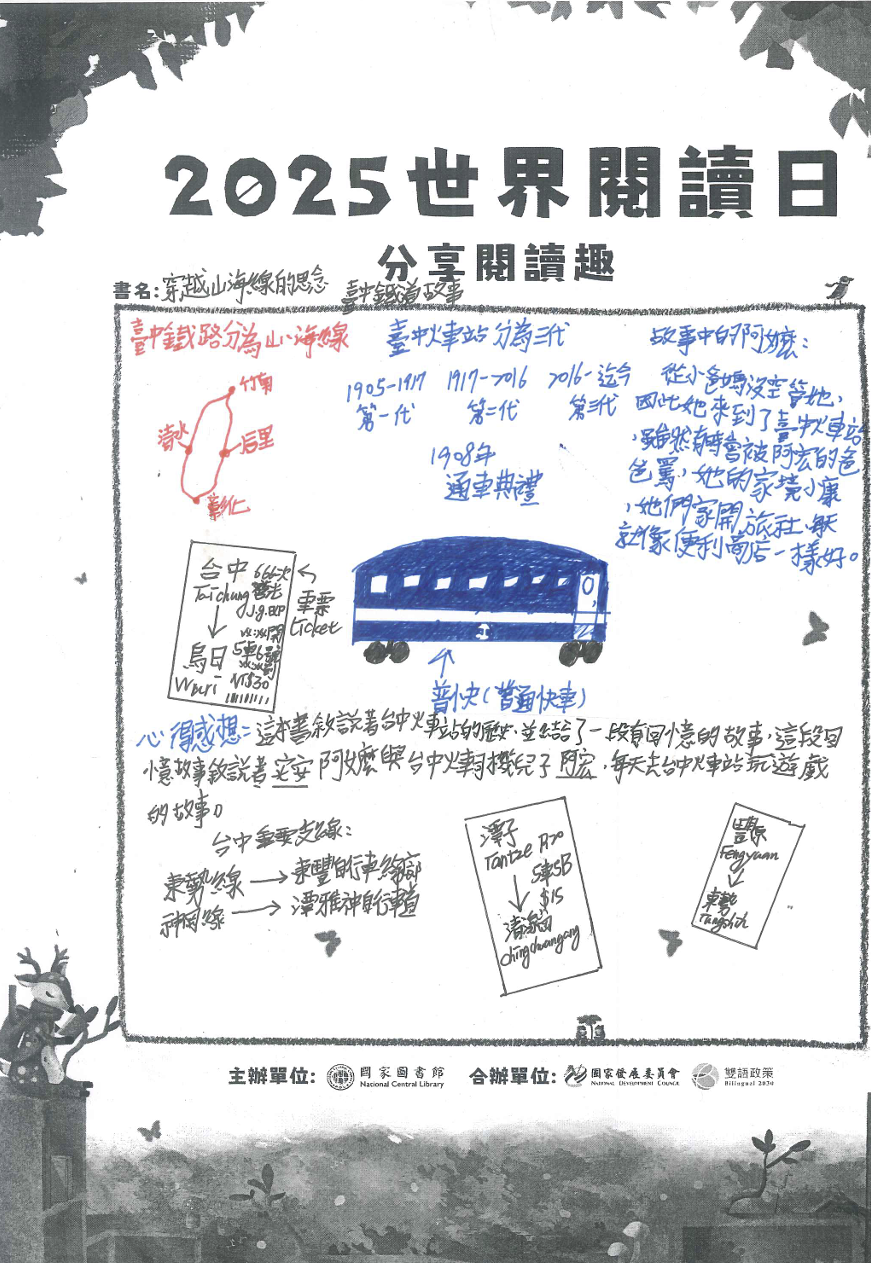 2025世界閱讀日
分享閱讀趣
書名:穿越山海線的思念 臺中鐵道故事
臺中鐵路分為山、海線
竹南
清水
后里
彰化
臺中火車站分為三代
1905-1917 1917-2016 2016-迄今
第一代 第二代 第三代
1908年
通車典禮
故事中的阿嬤:
從小爸媽沒空管她,
因此她來到了臺中火車站
,雖然有時會被阿宏的爸
爸罵,她的家境小康
,她們家開旅社,每天
就像便利商店一樣好。
台中
Taichung
烏日
Wuri
5車6號
NT$30
車票
ticket
普快(普通快車)
心得感想:這本書敘說著台中火車站的歷史,並結合了一段有回憶的故事,這段回
憶故事敘說著安安阿嬤與台中火車司機兒子阿宏,每天去台中火車站玩遊戲
的故事。
台中重要支線:
東勢線→東豐自行車綠廊
神岡線→潭雅神自行車道
潭子
Tantze
5車5B
$15
清泉崗
Chingchuangang
豐原
Fengyuan
東勢
主辦單位: 國家圖書館
National Central Library
合辦單位: 國家發展委員會
NATIONAL DEVELOPMENT COUNCIL
雙語政策
Bilingual 2030